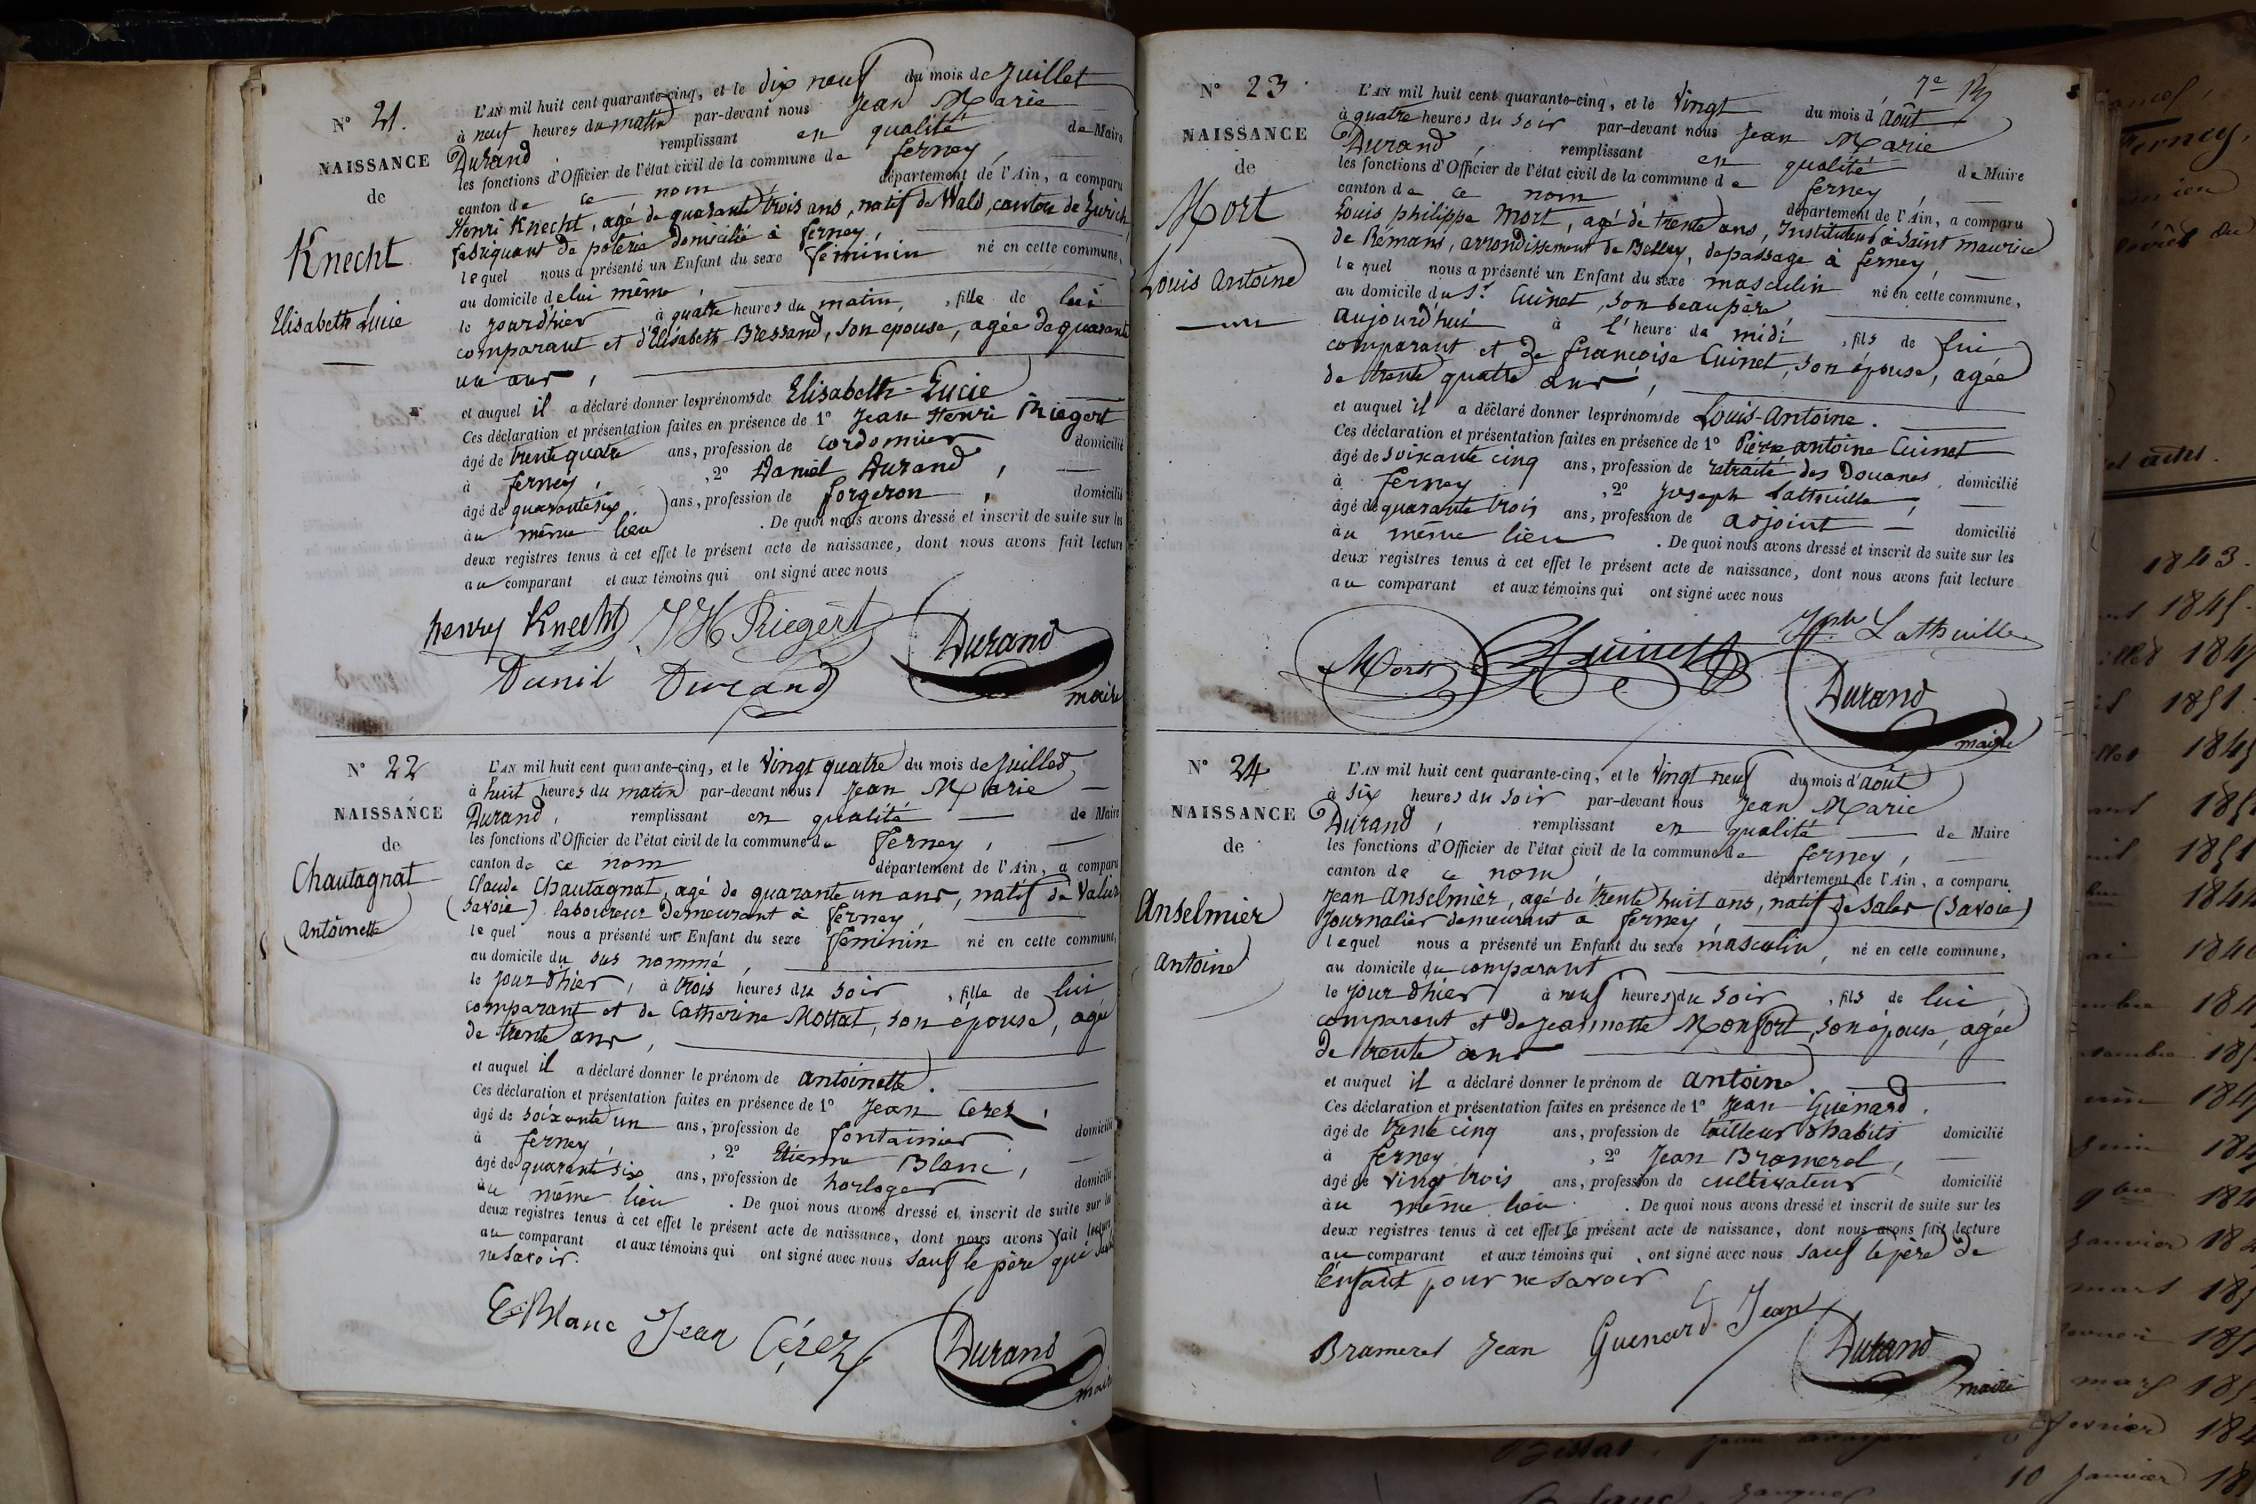 N° 21.
NAISSANCE
de
Knecht
Elisabeth Lucie
L'AN mil huit cent quarante-cinq, et le dix neuf du mois de Juillet
à neuf heures du matin par-devant nous Jean Marie
Durand remplissant en qualité de Maire
les fonctions d'Officier de l'état civil de la commune de ferney,
canton de ce nom département de l'Ain, a comparu
Henri Knecht, agé de quarante trois ans, natif de Wald, canton de Zurich,
fabriquant de poterie domicilié à ferney,
lequel nous a présenté un Enfant du sexe féminin né en cette commune,
au domicile de lui même,
le jour d'hier à quatre heures du matin, fille de lui
comparant et d'Elisabeth Bressand, son épouse, agée de quarante
un ans,
et auquel il a déclaré donner les prénoms de Elisabeth-Lucie
Ces déclaration et présentation faites en présence de 1° Jean Henri Riegert
âgé de trente quatre ans, profession de cordonnier domicilié
à ferney, , 2° Daniel Durand,
âgé de quarante six ans, profession de forgeron, domicilié
au même lieu . De quoi nous avons dressé et inscrit de suite sur les
deux registres tenus à cet effet le présent acte de naissance, dont nous avons fait lecture
au comparant et aux témoins qui ont signé avec nous
henry Knecht J H Riegert Durand
Danil Durand maire
N° 22
NAISSANCE
de
Chautagnat
Antoinette
L'AN mil huit cent quarante-cinq, et le Vingt quatre du mois de Juillet
à huit heures du matin par-devant nous Jean Marie
Durand, remplissant en qualité de Maire
les fonctions d'Officier de l'état civil de la commune de ferney,
canton de ce nom département de l'Ain, a comparu
Claude Chautagnat, agé de quarante un ans, natif de
(Savoie) laboureur demeurant à ferney,
lequel nous a présenté un Enfant du sexe féminin né en cette commune,
au domicile du sus nommé,
le jour d'hier, à trois heures du soir , fille de lui
comparant et de Catherine Mottat, son épouse, agée
de trente ans,
et auquel il a déclaré donner le prénom de antoinette.
Ces déclaration et présentation faites en présence de 1° Jean Cerez,
âgé de soixante un ans, profession de fontainier domicilié
à ferney, , 2° Etienne Blanc,
âgé de quarante six ans, profession de horloger domicilié
au même lieu . De quoi nous avons dressé et inscrit de suite sur les
deux registres tenus à cet effet le présent acte de naissance, dont nous avons fait lecture
au comparant et aux témoins qui ont signé avec nous sauf le père qui
ne savoir.
E. Blanc Jean Cérez Durand
maire
7e
N° 23
NAISSANCE
de
Mort
Louis antoine
L'AN mil huit cent quarante-cinq, et le Vingt du mois d'août
à quatre heures du soir par-devant nous Jean Marie
Durand, remplissant en qualité de Maire
les fonctions d'Officier de l'état civil de la commune de ferney,
canton de ce nom département de l'Ain, a comparu
Louis philippe Mort, agé de trente ans, Instituteur à Saint maurice
de Rémans, arrondissement de Belley, de passage à ferney,
lequel nous a présenté un Enfant du sexe masculin né en cette commune,
au domicile du Sr. Cuinet, son beau père,
aujourd'hui à l'heure de midi , fils de lui
comparant et de françoise Cuinet, son épouse, agée
de trente quatre ans,
et auquel il a déclaré donner les prénoms de Louis-Antoine.
Ces déclaration et présentation faites en présence de 1° Pierre antoine Cuinet
âgé de soixante cinq ans, profession de retraité des Douanes domicilié
à ferney , 2° Joseph Lathuille,
âgé de quarante trois ans, profession de adjoint domicilié
au même lieu . De quoi nous avons dressé et inscrit de suite sur les
deux registres tenus à cet effet le présent acte de naissance, dont nous avons fait lecture
au comparant et aux témoins qui ont signé avec nous
Mort Cuinet Jph Lathuille
Durand
maire
N° 24
NAISSANCE
de
Anselmier
antoine
L'AN mil huit cent quarante-cinq, et le Vingt neuf du mois d'août
à six heures du soir par-devant nous Jean Marie
Durand, remplissant en qualité de Maire
les fonctions d'Officier de l'état civil de la commune de ferney,
canton de ce nom, département de l'Ain, a comparu
Jean Anselmier, agé de trente huit ans, natif de Sales (Savoie)
Journalier demeurant à ferney,
lequel nous a présenté un Enfant du sexe masculin, né en cette commune,
au domicile du comparant,
le jour d'hier à neuf heures du soir , fils de lui
comparant et de Jeannette Monfort, son épouse, agée
de trente ans
et auquel il a déclaré donner le prénom de antoine.
Ces déclaration et présentation faites en présence de 1° Jean Guénard.
âgé de trente cinq ans, profession de tailleur d'habits domicilié
à ferney , 2° Jean Bramerel,
âgé de vingt trois ans, profession de cultivateur domicilié
au même lieu . De quoi nous avons dressé et inscrit de suite sur les
deux registres tenus à cet effet le présent acte de naissance, dont nous avons fait lecture
au comparant et aux témoins qui ont signé avec nous sauf le père de
l'enfant pour ne savoir
Bramerel Jean Guenard Jean Durand
maire
Ferney,
1843.
1845.
1851
1845
1851
mars
mars
fevrier
10 Janvier